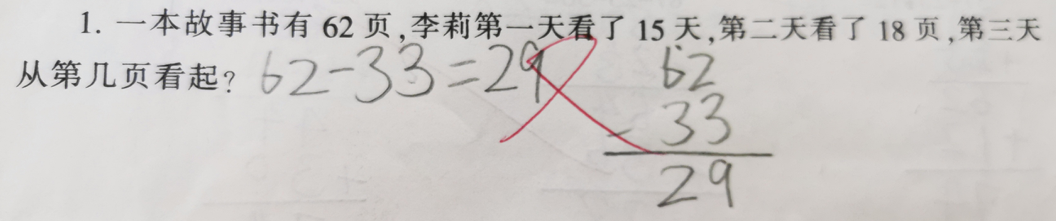 1. 一本故事书有 62 页,李莉第一天看了 15 天,第二天看了 18 页,第三天
从第几页看起? 62-33=29
62
- 33
29